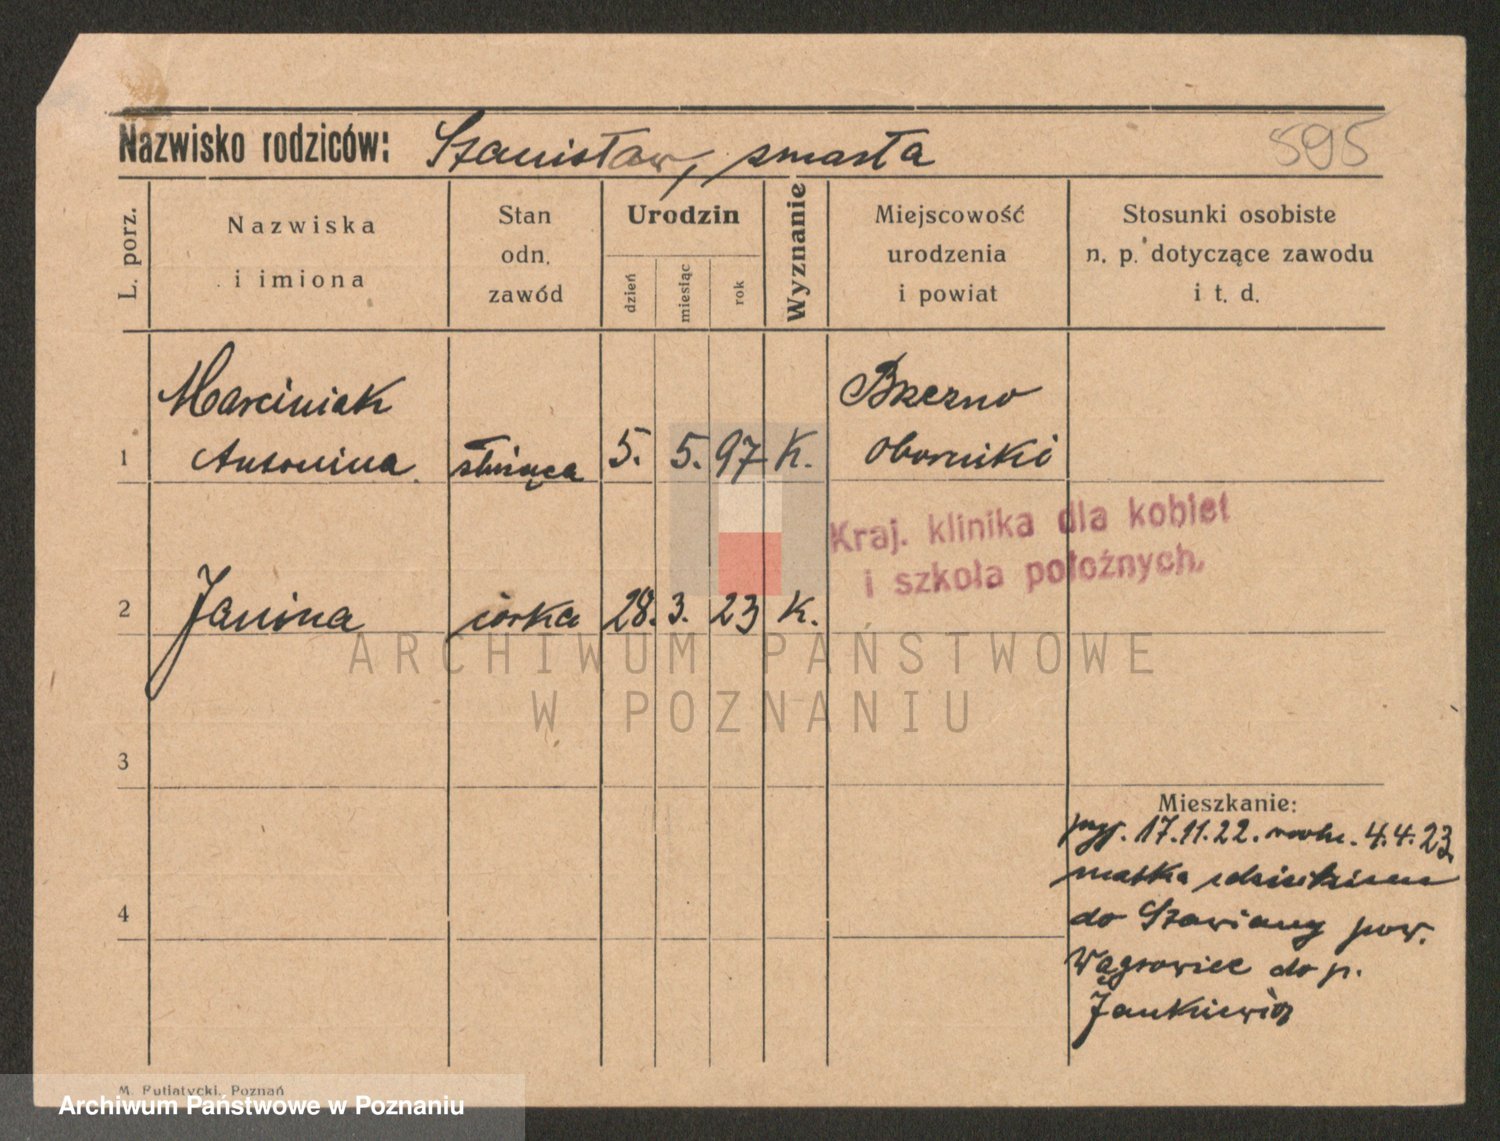 595
Nazwisko rodziców: Stanisław, zmarła
L. porz.
Nazwiska
i imiona
Stan
odn.
zawód
Urodzin
dzień
miesiąc
rok
Wyznanie
Miejscowość
urodzenia
i powiat
Stosunki osobiste
n. p. dotyczące zawodu
i t. d.
Marciniak
Brzezno
1 Antonina służąca 5. 5. 97 K. Oborniki
Kraj. klinika dla kobiet
i szkoła położnych.
2 Janina córka 28. 3. 23 K.
ARCHIWUM PAŃSTWOWE
W POZNANIU
3
Mieszkanie:
17.11.22. 4.4.23
matka
4
do Stawiany pow.
Wągrowiec do p.
Jankiewicz
M. Putiatycki, Poznań
Archiwum Państwowe w Poznaniu